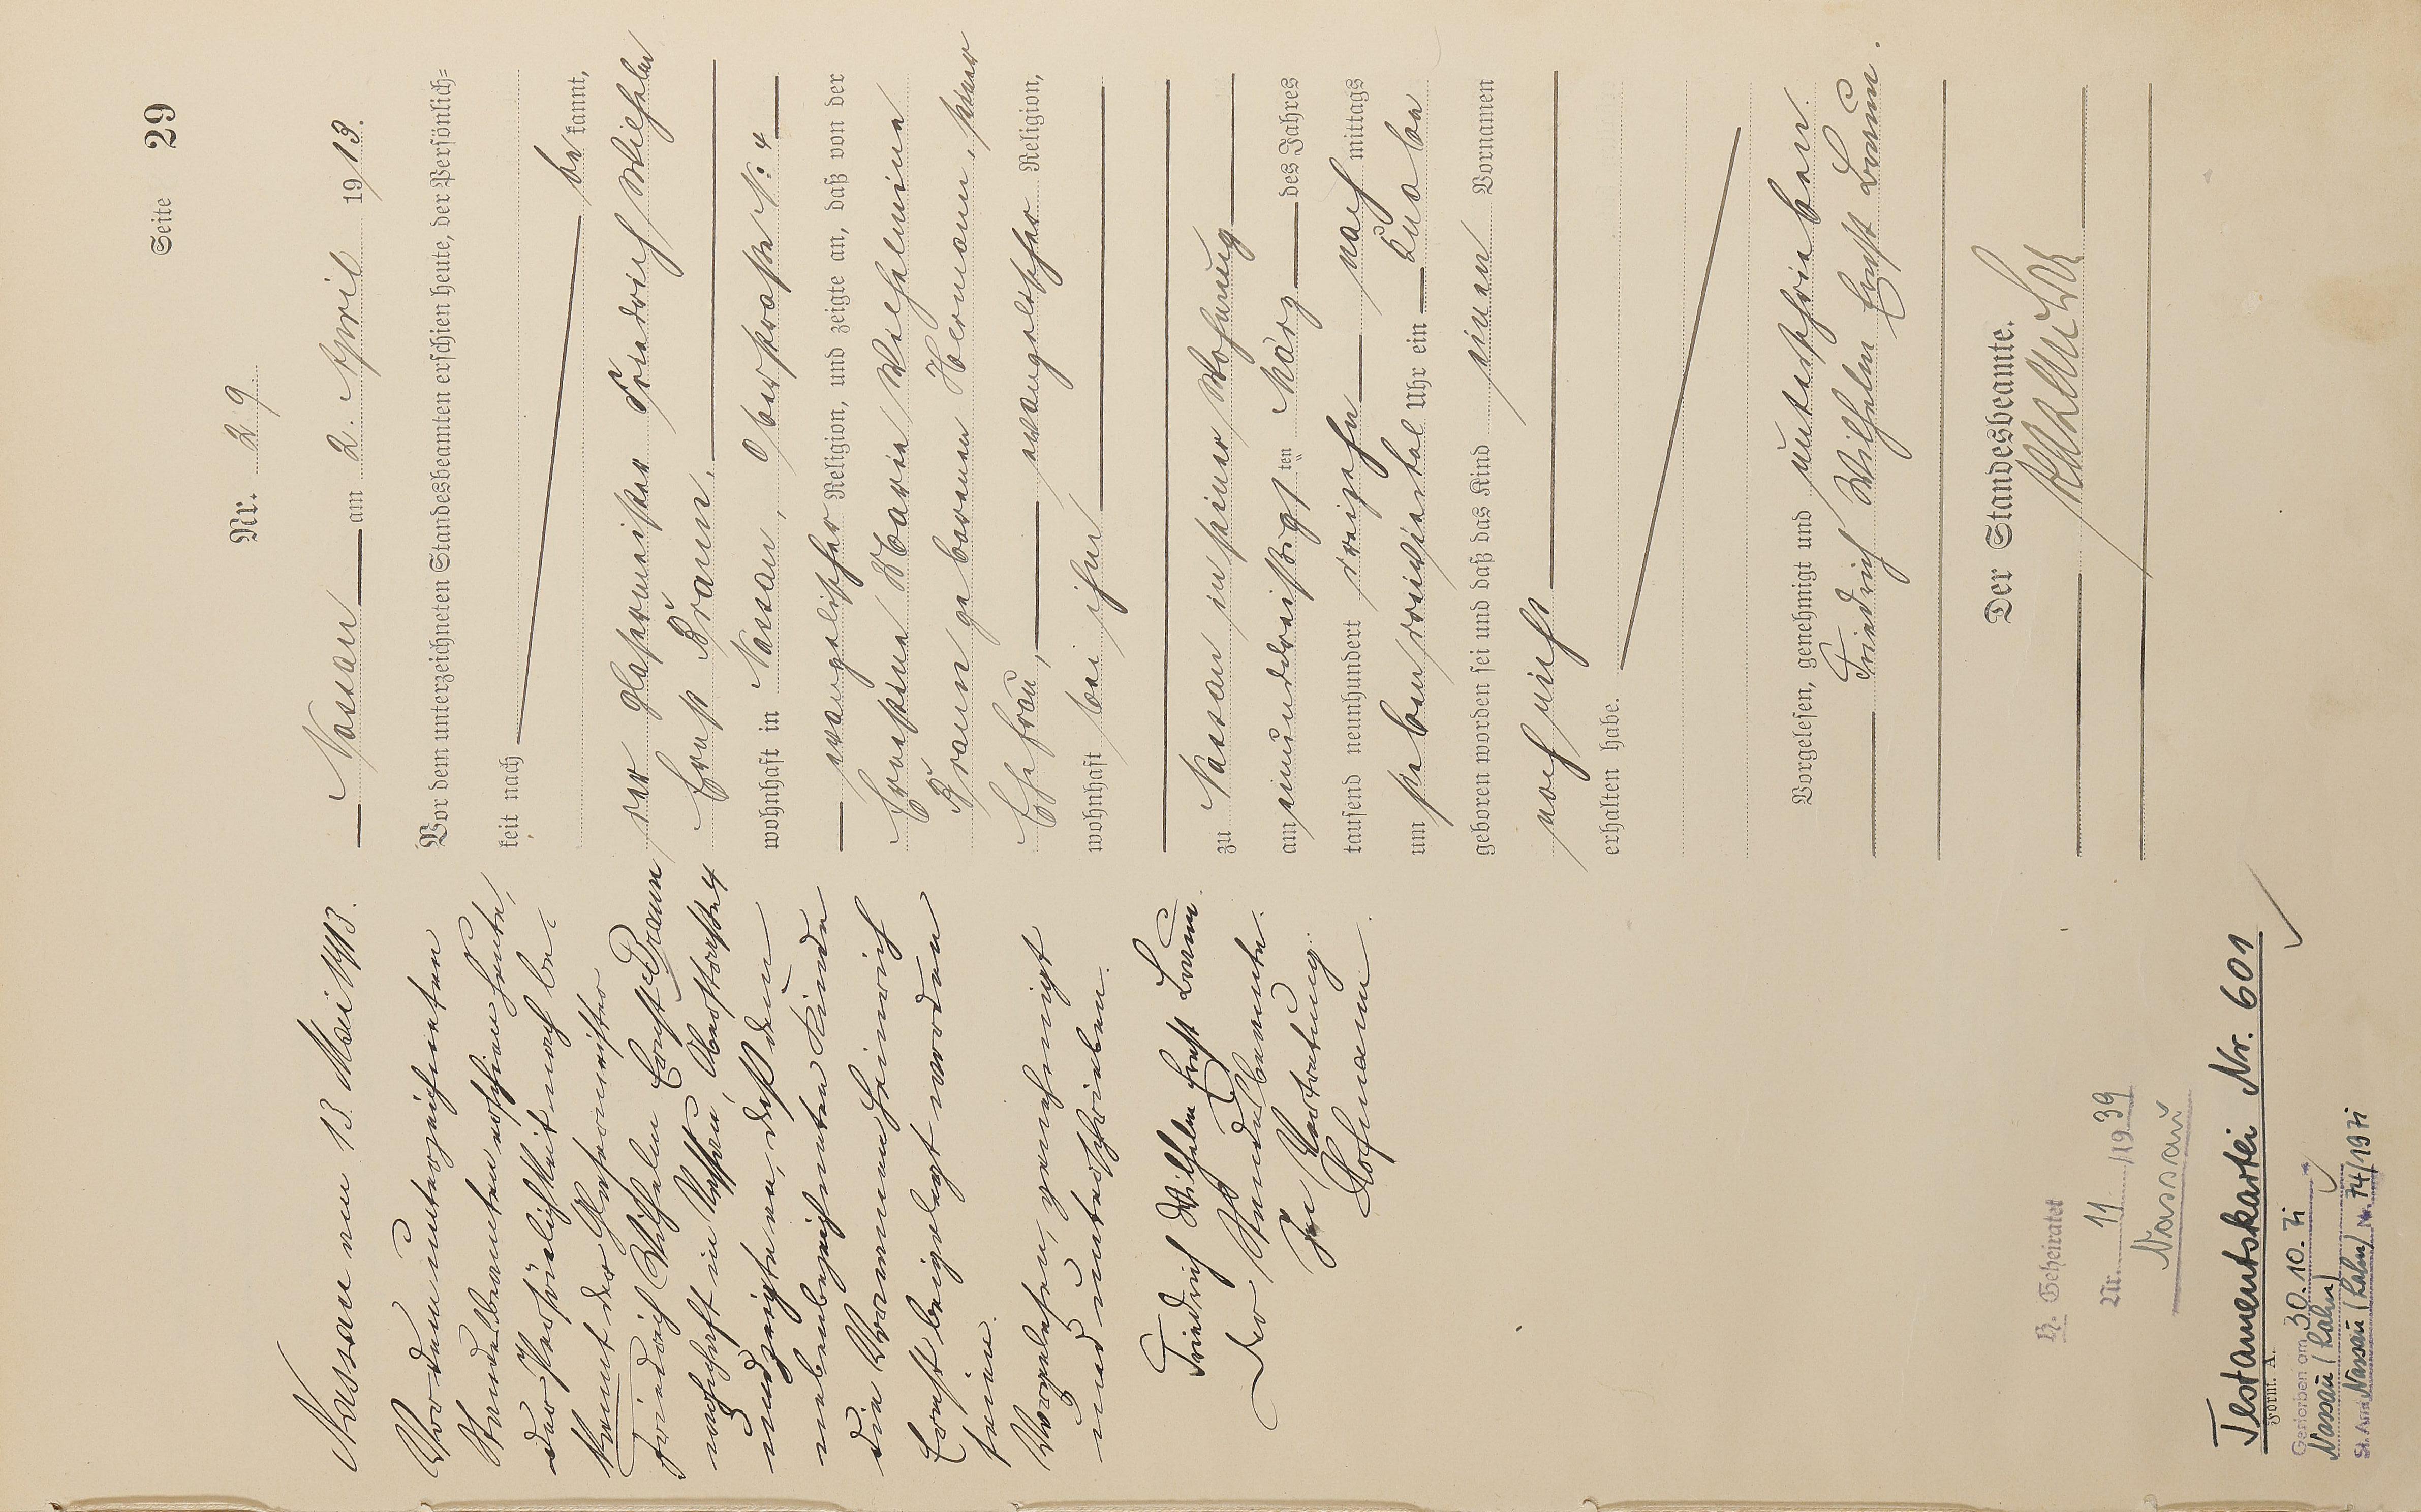 Seite 29
Nr. 29
Nassau am 2. April 1913.
Vor dem unterzeichneten Standesbeamten erschien heute, der Persönlich=
keit nach
be kannt,
der Glasermeister Friedrich Wilhelm
Ernst Braun,
wohnhaft in Nassau, Oberstraße N: 4
evangelischer Religion, und zeigte an, daß von der
Ernestine Maria Wilhelmine
Braun geborenen Hermann, seiner
Ehefrau, evangelischer Religion,
wohnhaft bei ihm
zu Nassau in seiner Wohnung
am einunddreißigsten März des Jahres
tausend neunhundert dreizehn nach mittags
um sieben dreiviertel Uhr ein Knabe
geboren worden sei und daß das Kind einen Vornamen
noch nicht
erhalten habe.
Vorgelesen, genehmigt und unterschrieben.
Friedrich Wilhelm Ernst Braun.
Der Standesbeamte.
Nassau am 13. Mai 1913.
Vor dem unterzeichneten
Standesbeamten erschien heute,
der Persönlichkeit nach be=
kannt der Glasermeister
Friedrich Wilhelm Ernst Braun
wohnhaft in Nassau, Oberstraße 4
und zeigte an, daß dem
nebenbezeichneten Kinde
die Vornamen Heinrich
Ernst beigelegt worden
seien.
Vorgelesen, genehmigt
und unterschrieben.
Friedrich Wilhelm Ernst Braun.
Der Standesbeamte.
In Vertretung.
Hofmann.
H. Geheiratet
Nr. 11 /1939
Nassau
Testamentskartei Nr. 601
Form. A.
Gestorben am 30.10.71
Nassau (Lahn)
St. Amt Nassau (Lahn) Nr. 74/1971